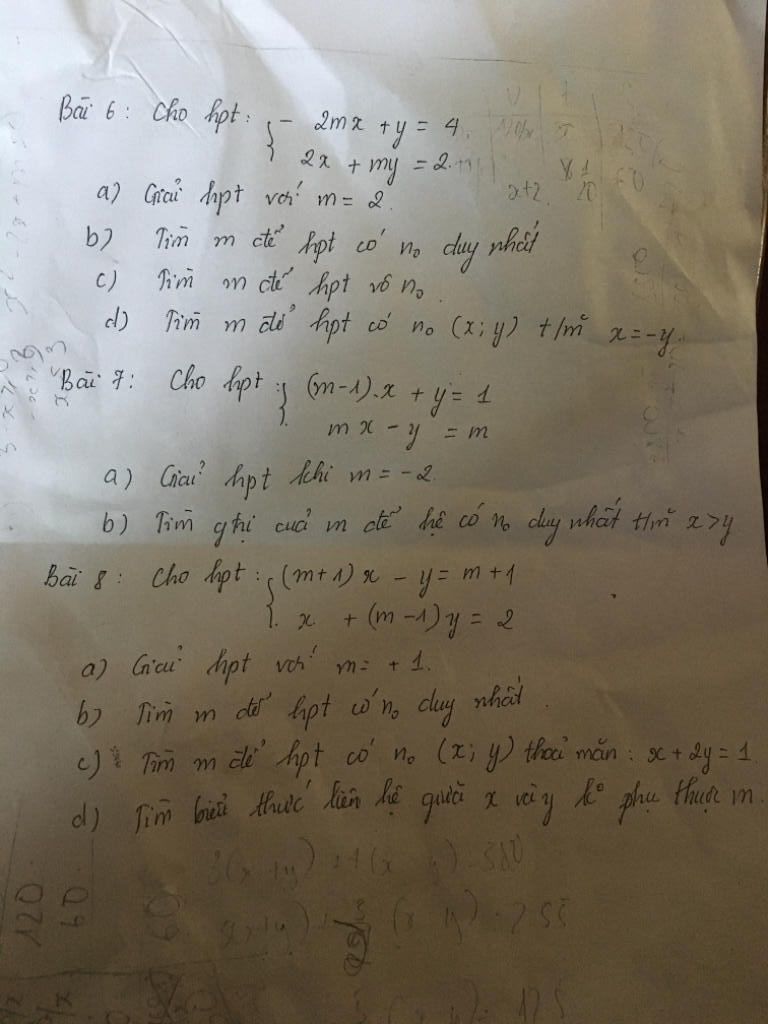 Bài 6: Cho hpt: { - 2mx + y = 4
2x + my = 2
a) Giải hpt với m = 2.
b) Tìm m để hpt có n₀ duy nhất
c) Tìm m để hpt vô n₀.
d) Tìm m để hpt có n₀ (x; y) t/m x = -y.
Bài 7: Cho hpt: { (m-1).x + y = 1
mx - y = m
a) Giải hpt khi m = -2
b) Tìm gtrị của m để hệ có n₀ duy nhất t/m x>y
Bài 8: Cho hpt: { (m+1)x - y = m+1
x + (m-1)y = 2
a) Giải hpt với m = +1.
b) Tìm m để hpt có n₀ duy nhất.
c) Tìm m để hpt có n₀ (x; y) thoả mãn: x + 2y = 1
d) Tìm biểu thức liên hệ giữa x và y k° phụ thuộc m.
120
60